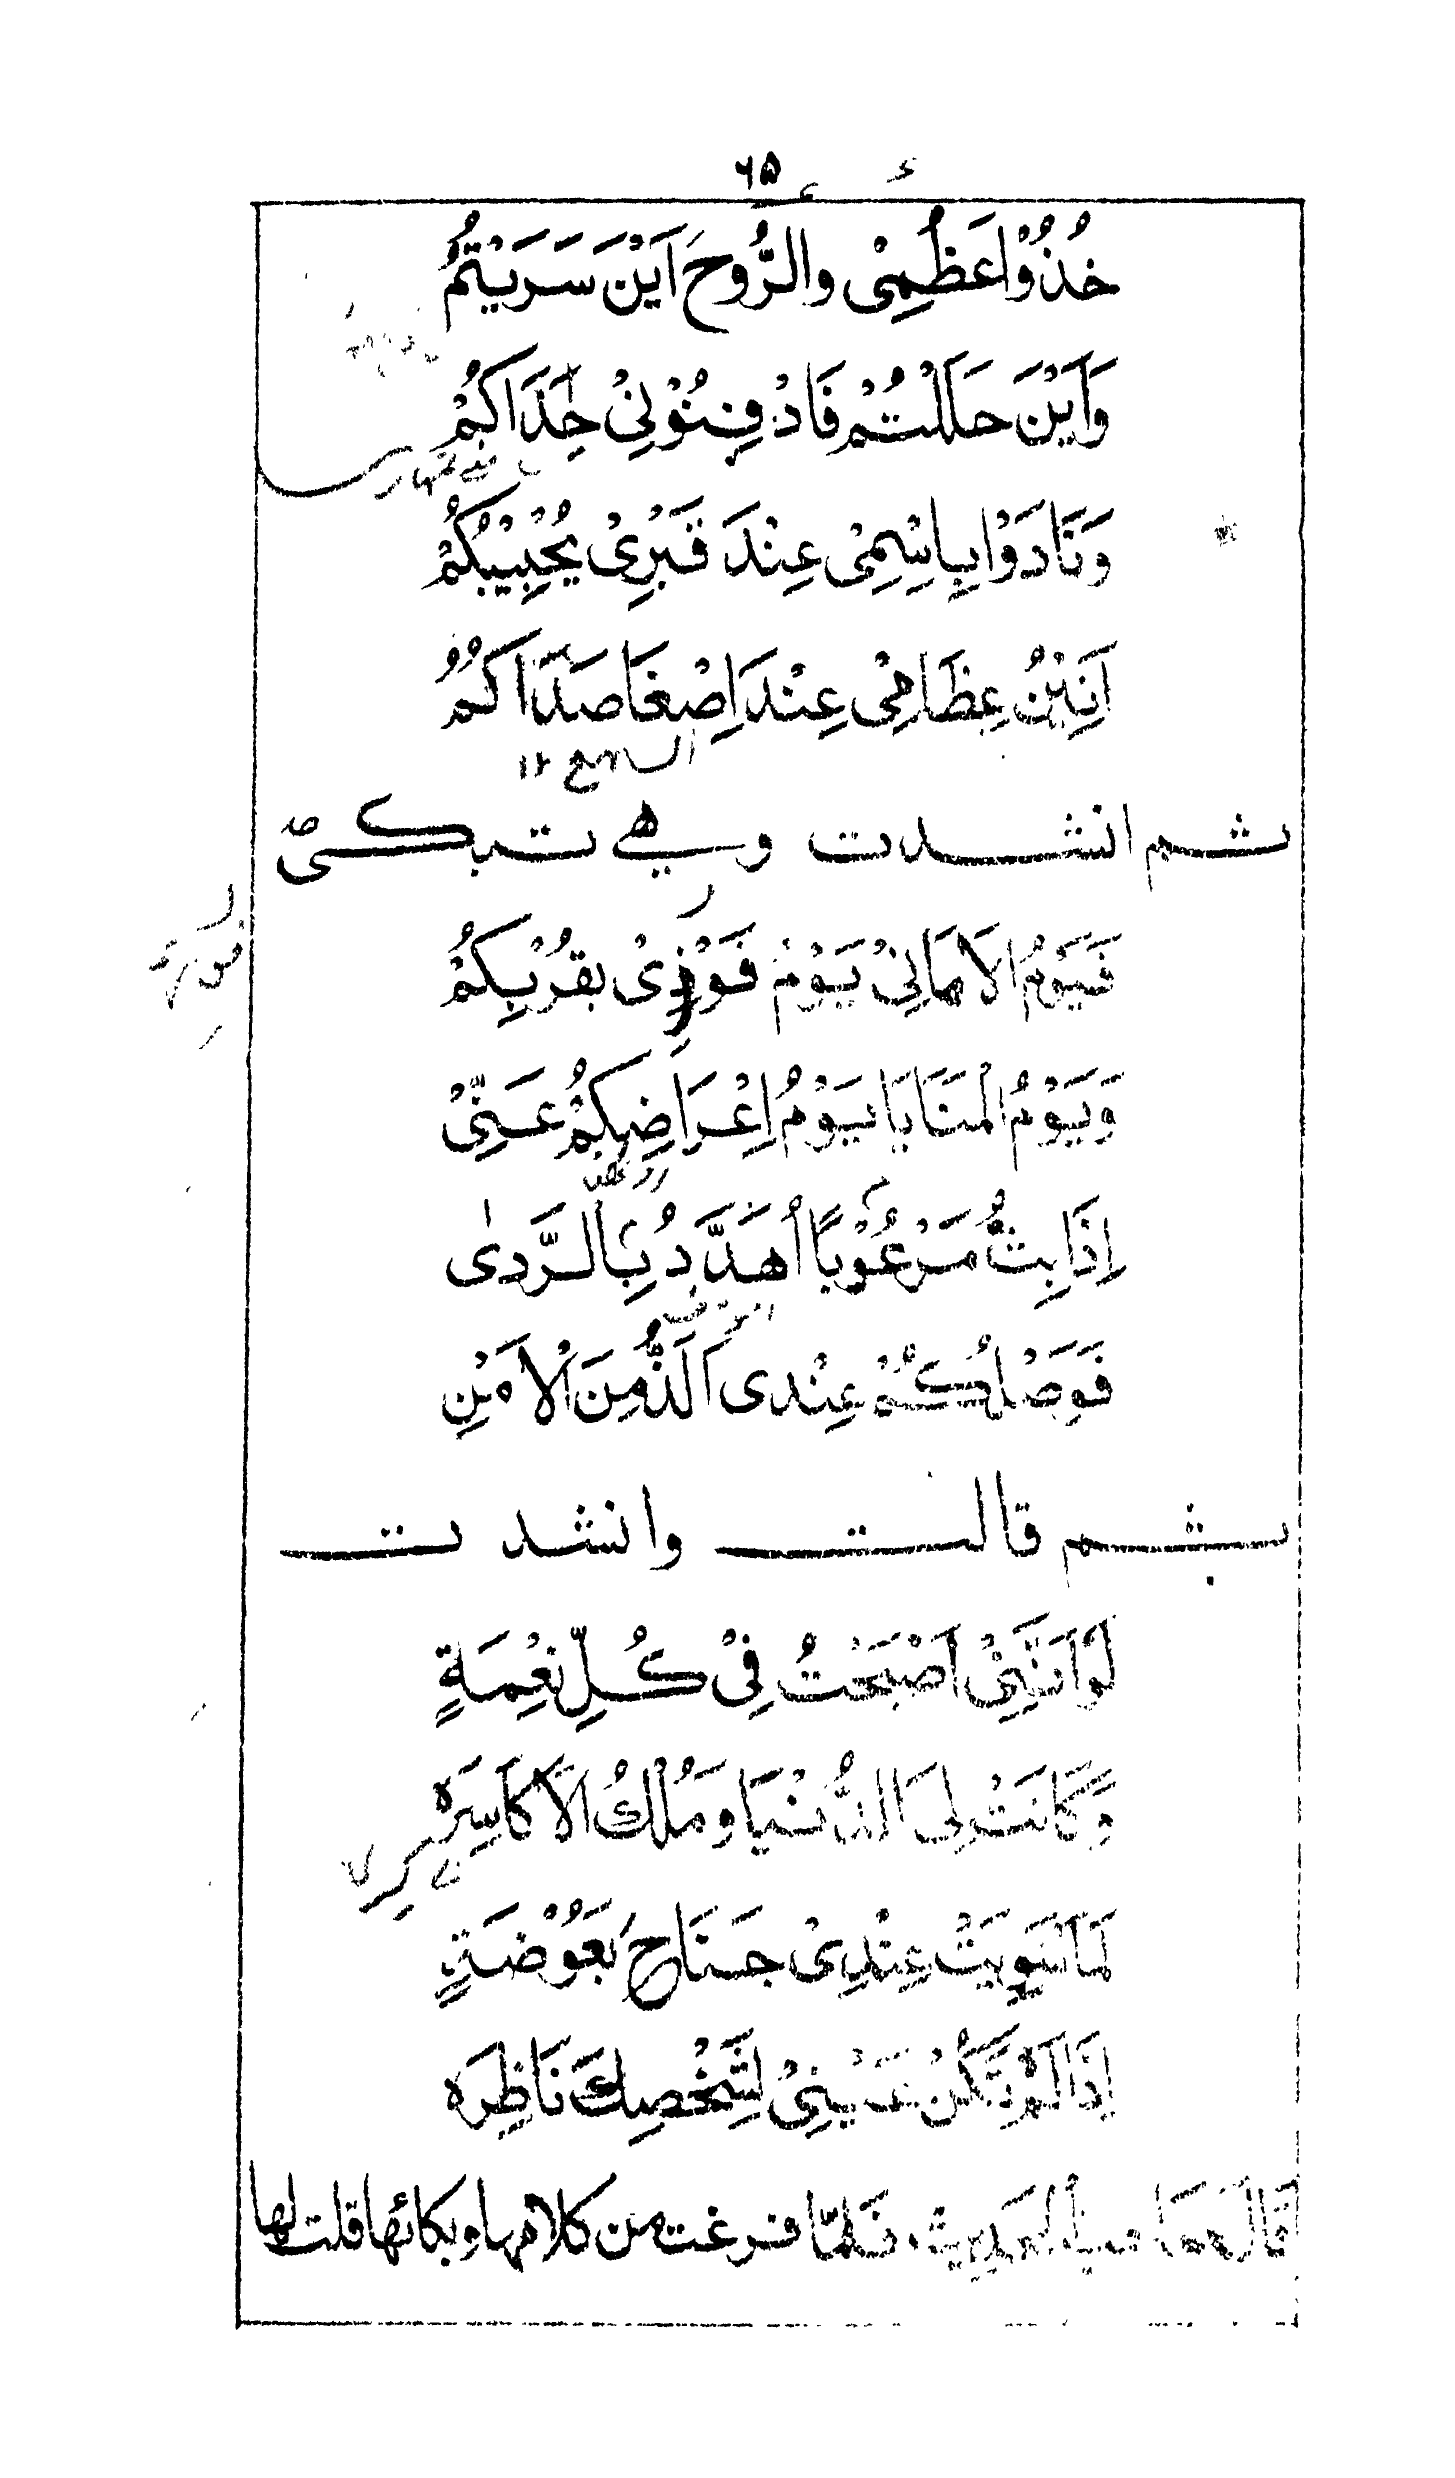 ۶۵
خُذُوْا عَظْمِىْ وَالرُّوْحَ اَيْنَ سَرَيْتُمُ
وَاَيْنَ حَلَلْتُمْ فَادْفِنُوْنِىْ حِذَاكُمْ
وَنَادَوْا بِاسْمِىْ عِنْدَ قَبْرِىْ يُجِيْبُكُمْ
اَنِيْنُ عِظَامِىْ عِنْدَ اِصْغَا صَدَاكُمُ
السمع ۱۲
ثم انشدت وهي تبكى
فَيَوْمُ الْاَمَانِىْ يَوْمُ فَوْزِىْ بِقُرْبِكُمْ
وَيَوْمُ الْمَنَايَا يَوْمُ اِعْرَاضِكُمْ عَنِّىْ
اِذَا بِتُّ مَرْعُوْبًا اُهَدَّدُ بِالرَّدىٰ
فَوَصْلُكُمْ عِنْدِى اَلَذُّ مِنَ الْاَمْنِ
ثم قالت وانشدت
لَوْ اَنَّنِىْ اَصْبَحْتُ فِىْ كُلِّ نِعْمَةٍ
وَكَانَتْ لِىَ الدُّنْيَا وَمُلْكُ الْاَكَاسِرَه
لَمَا سَوِيَتْ عِنْدِىْ جَنَاحَ بَعُوْضَةٍ
اِذَا لَمْ تَكُنْ عَيْنِىْ لِشَخْصِكَ نَاظِرَه
قَالَ صاحب الحديث فَلَمَّا فرغت من كلامها وبكائها قلت لها